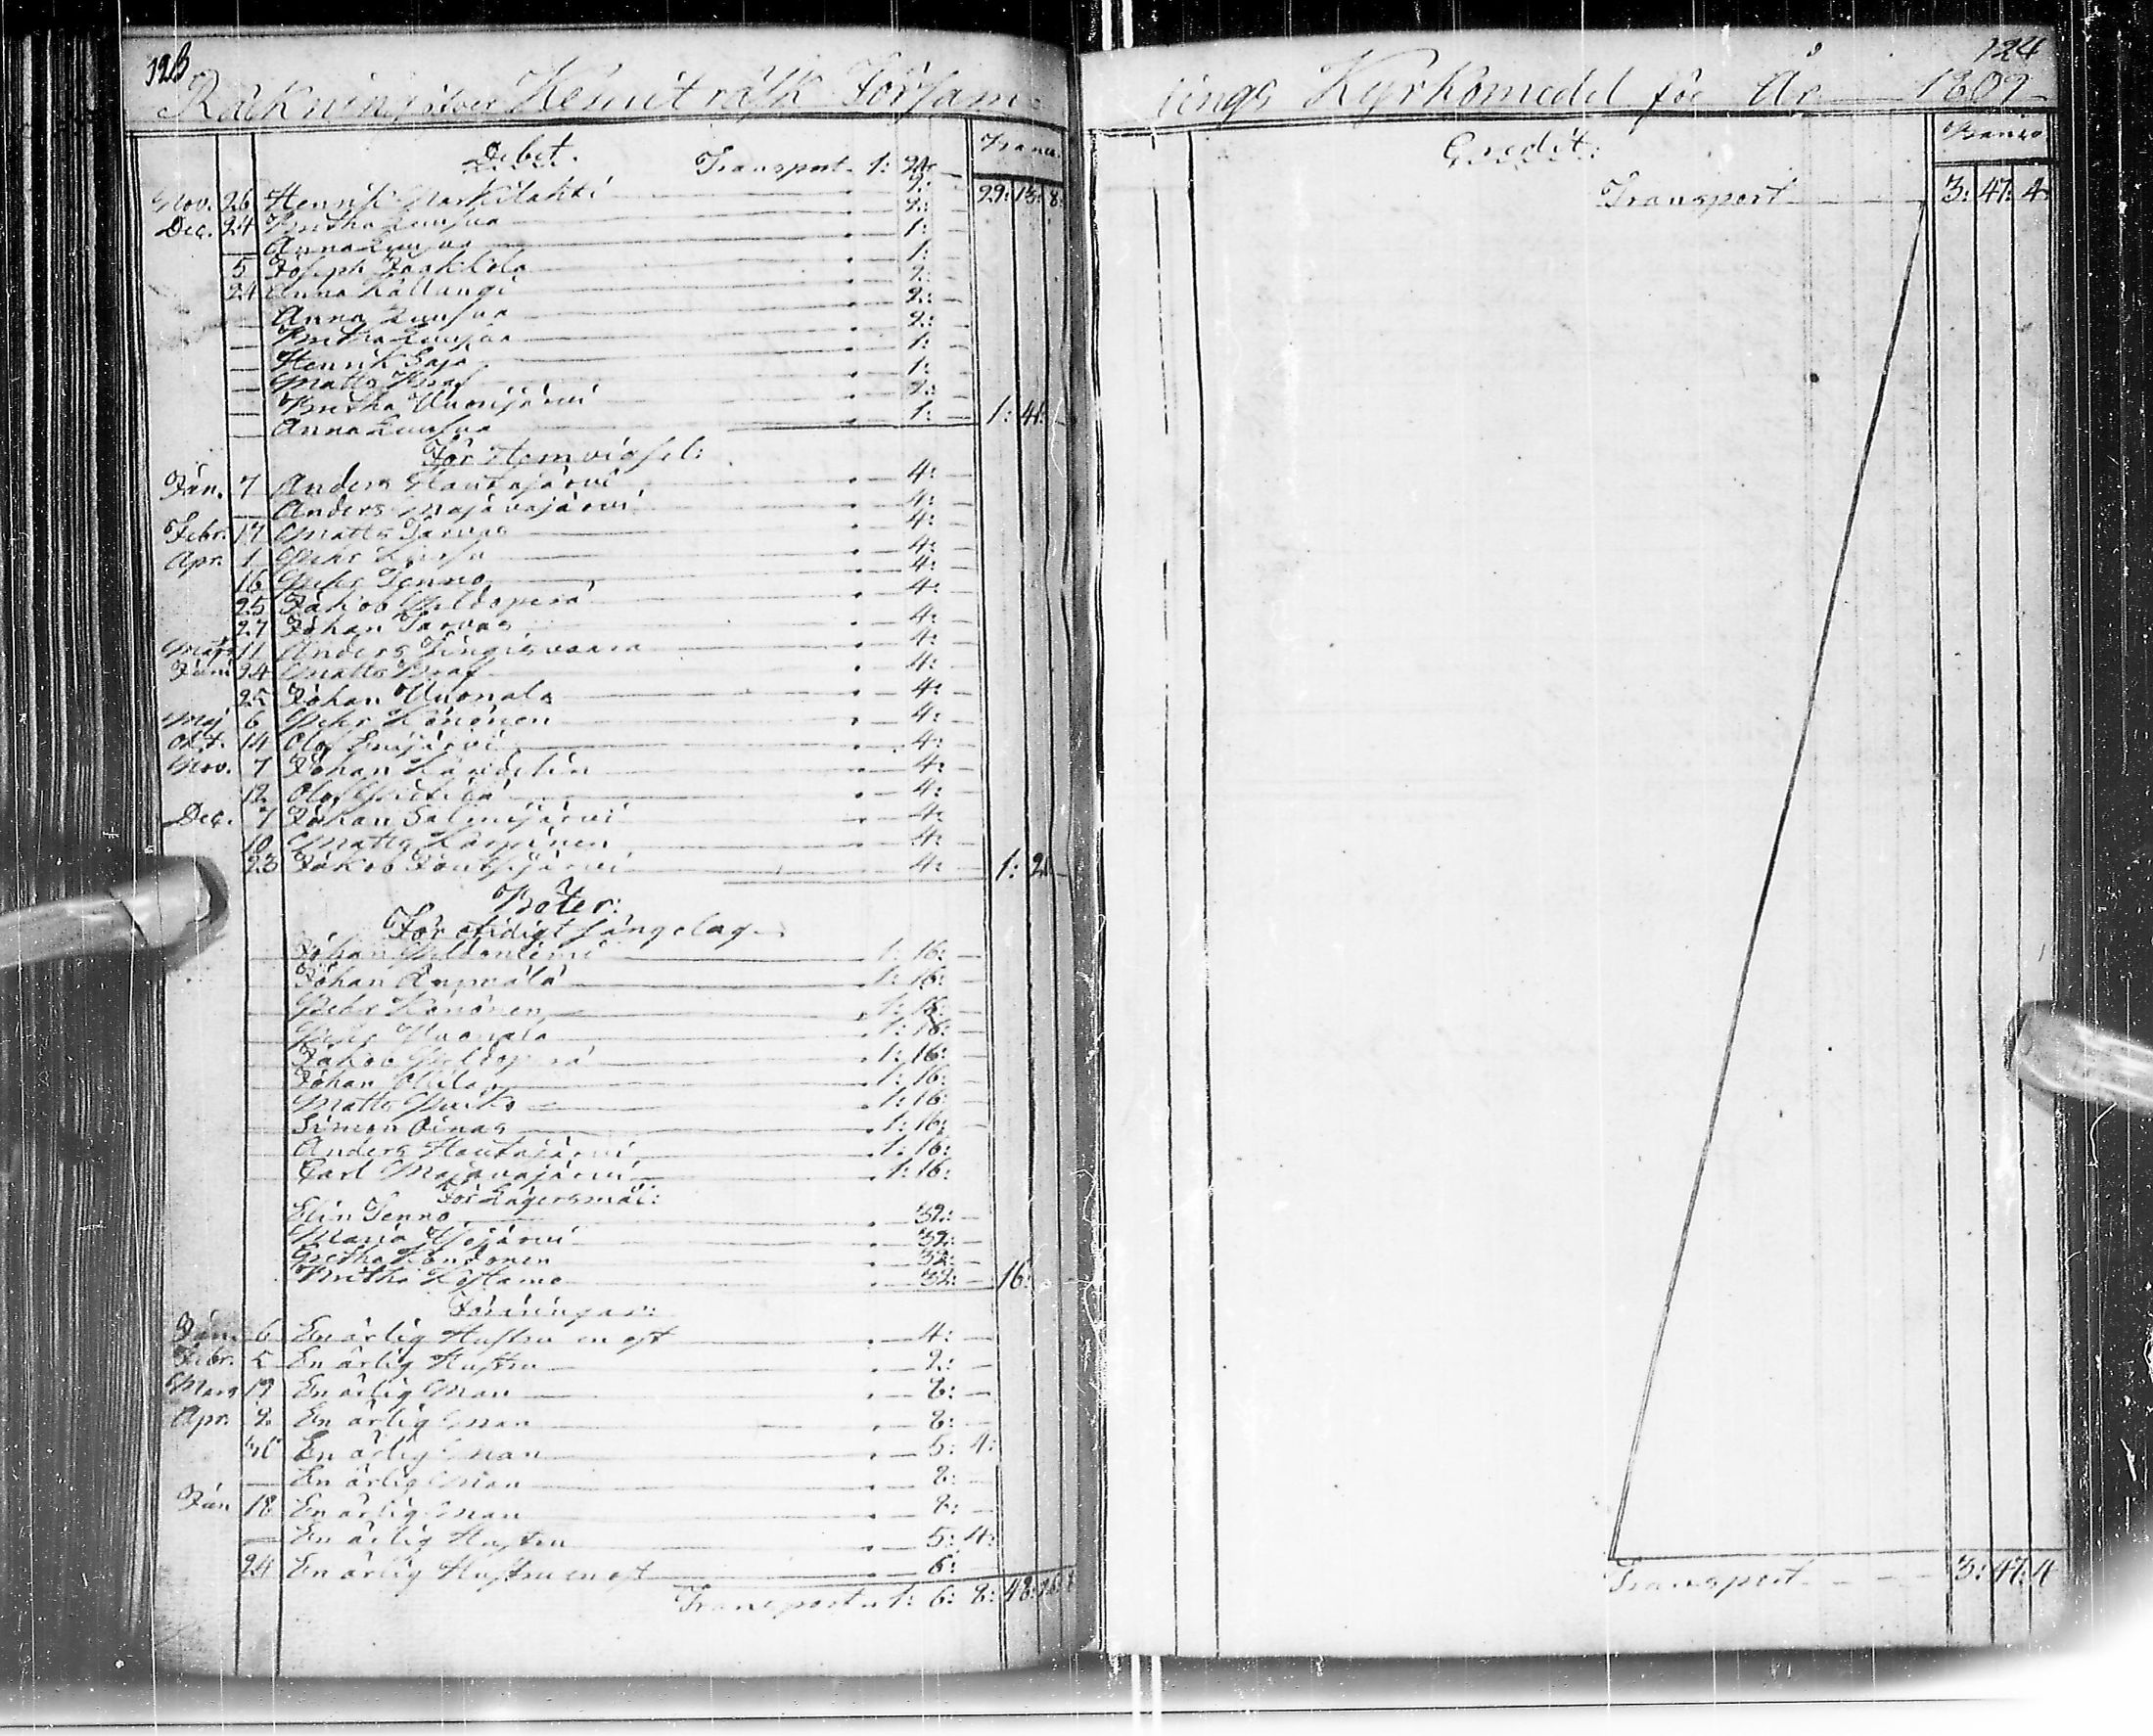 123
Räkning öfver Kemiträsk Försam=
Debet. Transport 1: 24: — Banco
Nov. 26 Henrik Markilahti . — 2: — 29: 13: 8:
Dec. 24 Britha Luusua . — 2: —
— Anna Luusua . — 1: —
5 Joseph Jaakkola . — 1: —
24 Anna Kallungi . — 2: —
— Anna Luusua . — 2: —
— Britha Luusua . — 2: —
— Henrik Saja . — 1: —
— Matts . — 1: —
— Britha Vuosjärvi . — 2: —
— Anna Luusua . — 1: — 1: 41: —
För Hemvigsel:
Jan. 7 Anders Hautajärvi . — 4: —
— Anders Majavajärvi . — 4: —
Febr. 17 Matts Tarvas . — 4: —
Apr. 1 Pehr . — 4: —
16 Pehr Tenno . — 4: —
25 Jakob Peldoperä . — 4: —
27 Johan Tarvas . — 4: —
11 Anders . — 4: —
Juni 24 Matts . — 4: —
25 Johan Vuonala . — 4: —
Maj 6 Pehr Könönen . — 4: —
Okt. 14 Olof . — 4: —
Nov. 7 Johan . — 4: —
12 Olof . — 4: —
Dec. 7 Johan Salmijärvi . — 4: —
10 Matts . — 4: —
23 Jakob . — 4: — 1: 20: —
Böter:
För otidigt sängelag:
Johan Peldoniemi . 1: 16: —
Johan Ampuala . 1: 16: —
Pehr Könönen . 1: 16: —
Pehr Vuonala . 1: 16: —
Jakob Peldoperä . 1: 16: —
Johan Ollila . 1: 16: —
Matts . 1: 16: —
Simon Oinas . 1: 16:
Anders Hautajärvi . 1: 16:
Carl Majavajärvi . 1: 16:
För Lägersmål:
Elin Tenno . — 32: —
Maria . — 32: —
Gretha . — 32: —
Britha Kostamo . — 32: — 16:
Föräringar:
Jan. 6 En ärlig Hustru en ost . — 4: —
Febr. 5 En ärlig Hustru . — 2: —
Mars 19 En ärlig Man . — 8: —
Apr. 2 En ärlig Man . — 8: —
30 En ärlig Man . — 5: 4:
— En ärlig Man . — 8: —
Jun 18 En ärlig Man . — 8: —
— En ärlig Hustru . — 5: 4:
24 En ärlig Hustru en ost . — 6: —
Transport 1: 6: 8: 48:
124
lings Kyrkomedel för År 1809
Credit: Banco
Transport 3: 47: 4:
Transport 3: 47: 4